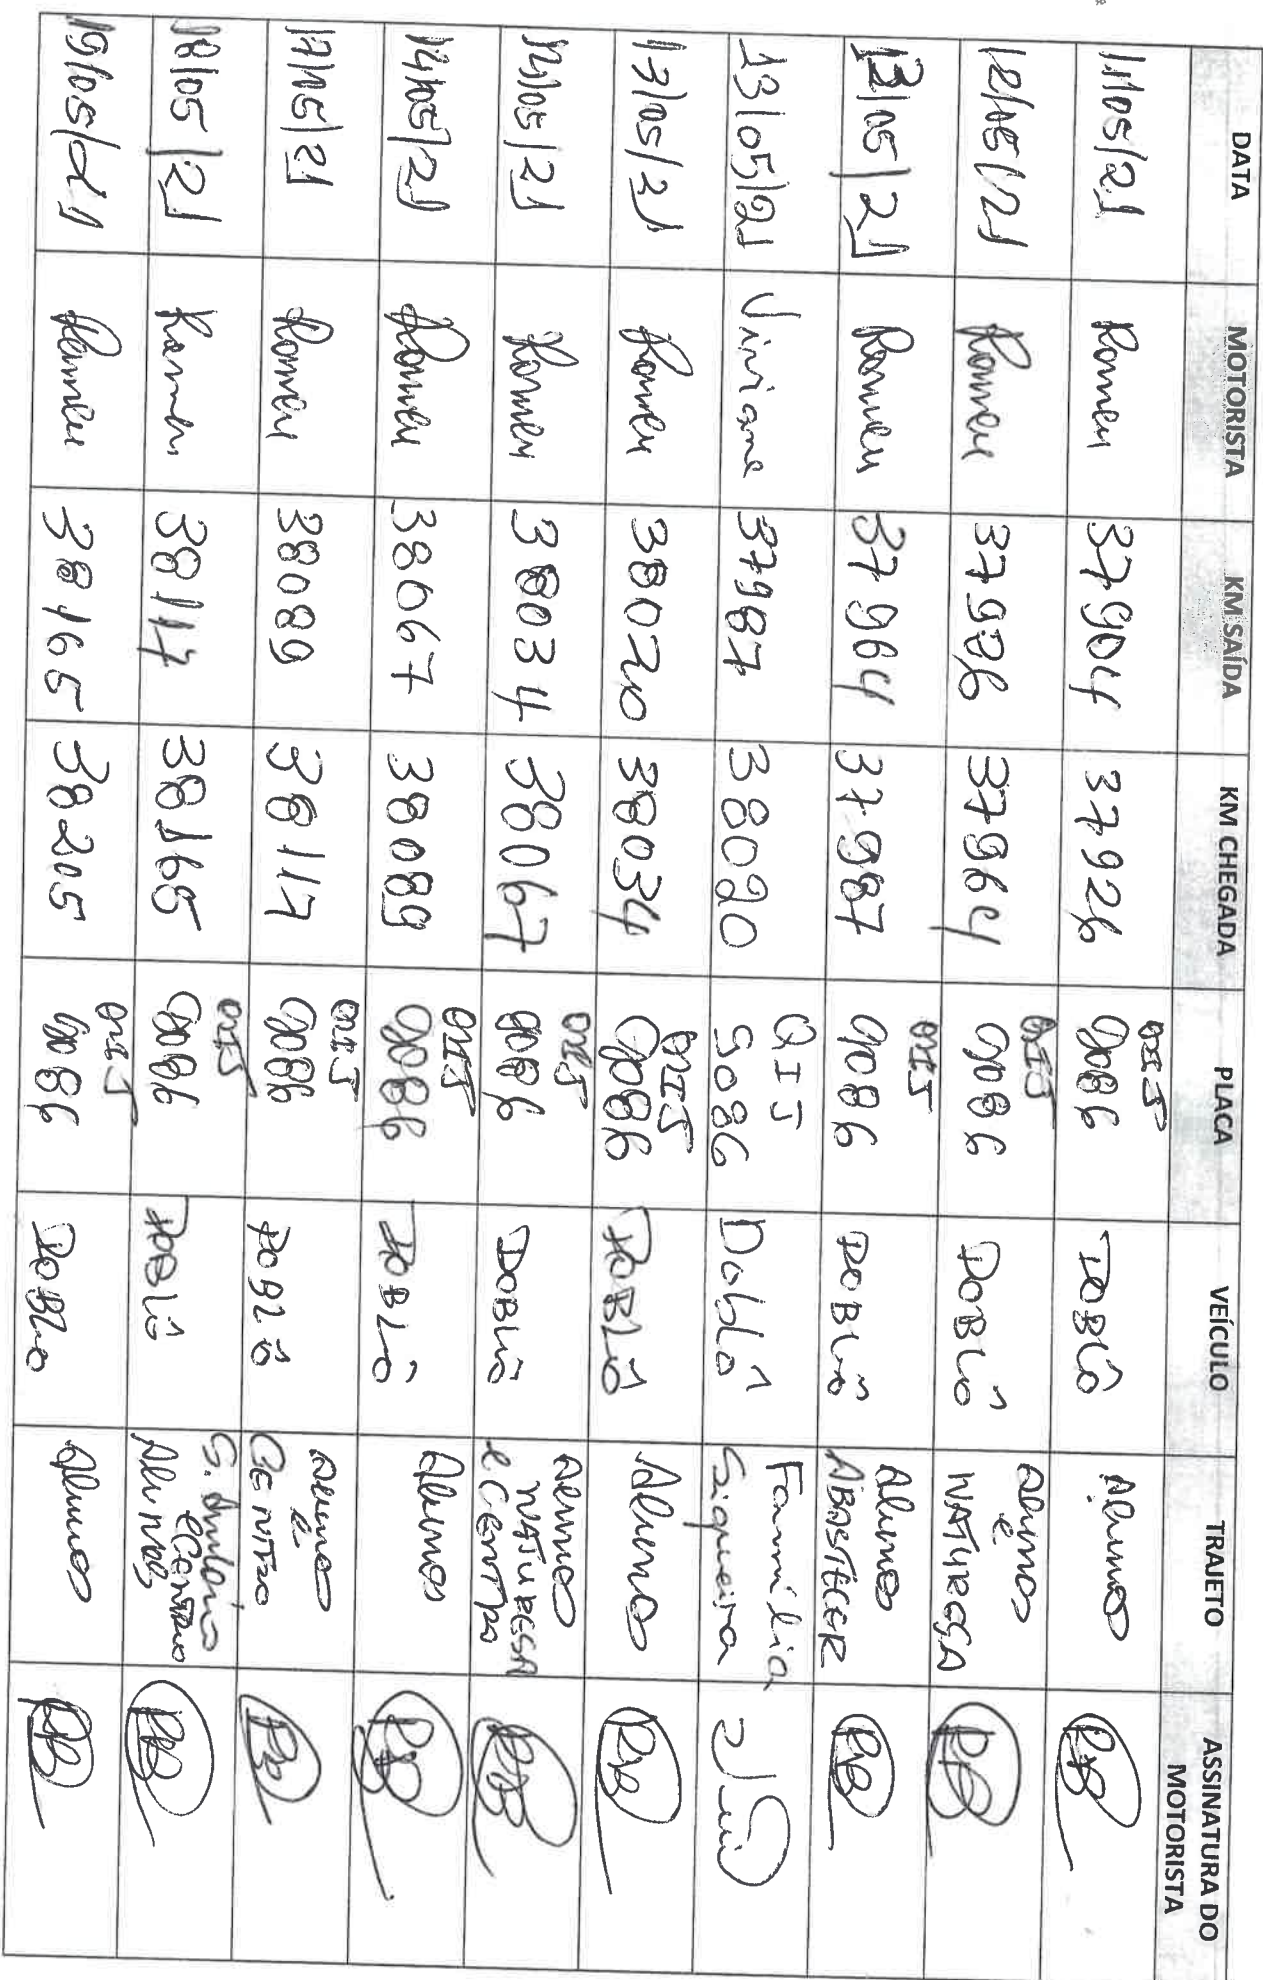 DATA MOTORISTA KM SAÍDA KM CHEGADA PLACA VEÍCULO TRAJETO ASSINATURA DO MOTORISTA
11/05/21 Romeu 37904 37926 QIJ 9086 DOBLÔ Alunos
12/05/21 Romeu 37926 37964 QIJ 9086 DOBLÔ Alunos e NATUREGA
13/05/21 Romeu 37964 37987 QIJ 9086 DOBLÔ Alunos ABASTECER
13/05/21 Viviane 37987 38020 QIJ 9086 Doblô Família Siqueira
13/05/21 Romeu 38020 38034 QIJ 9086 DOBLÔ Alunos
14/05/21 Romeu 38034 38067 QIJ 9086 DOBLÔ Alunos NATURESA e CENTRO
14/05/21 Romeu 38067 38089 QIJ 9086 DOBLÔ Alunos
17/05/21 Romeu 38089 38117 QIJ 9086 DOBLÔ Alunos e CENTRO
18/05/21 Romeu 38117 38165 QIJ 9086 DOBLÔ S. Antônio e Centro Alunos
19/05/21 Romeu 38165 38205 QIJ 9086 DOBLO Alunos